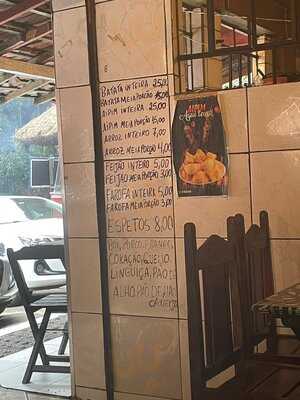 BATATA INTEIRA 25,00
BATATA MEIA PORÇÃO 15,00
AIPIM INTEIRA 25,00
AIPIM MEIA PORÇÃO 15,00
ARROZ INTEIRO 7,00
ARROZ MEIA PORÇÃO 4,00
FEIJÃO INTEIRO 5,00
FEIJÃO MEIA PORÇÃO 3,00
FAROFA INTEIRA 5,00
FAROFA MEIA PORÇÃO 3,00
ESPETOS 8,00
CORAÇÃO, QUEIJO
LINGUIÇA, PÃO DE
ALHO, PÃO DE ALHO
AIPIM